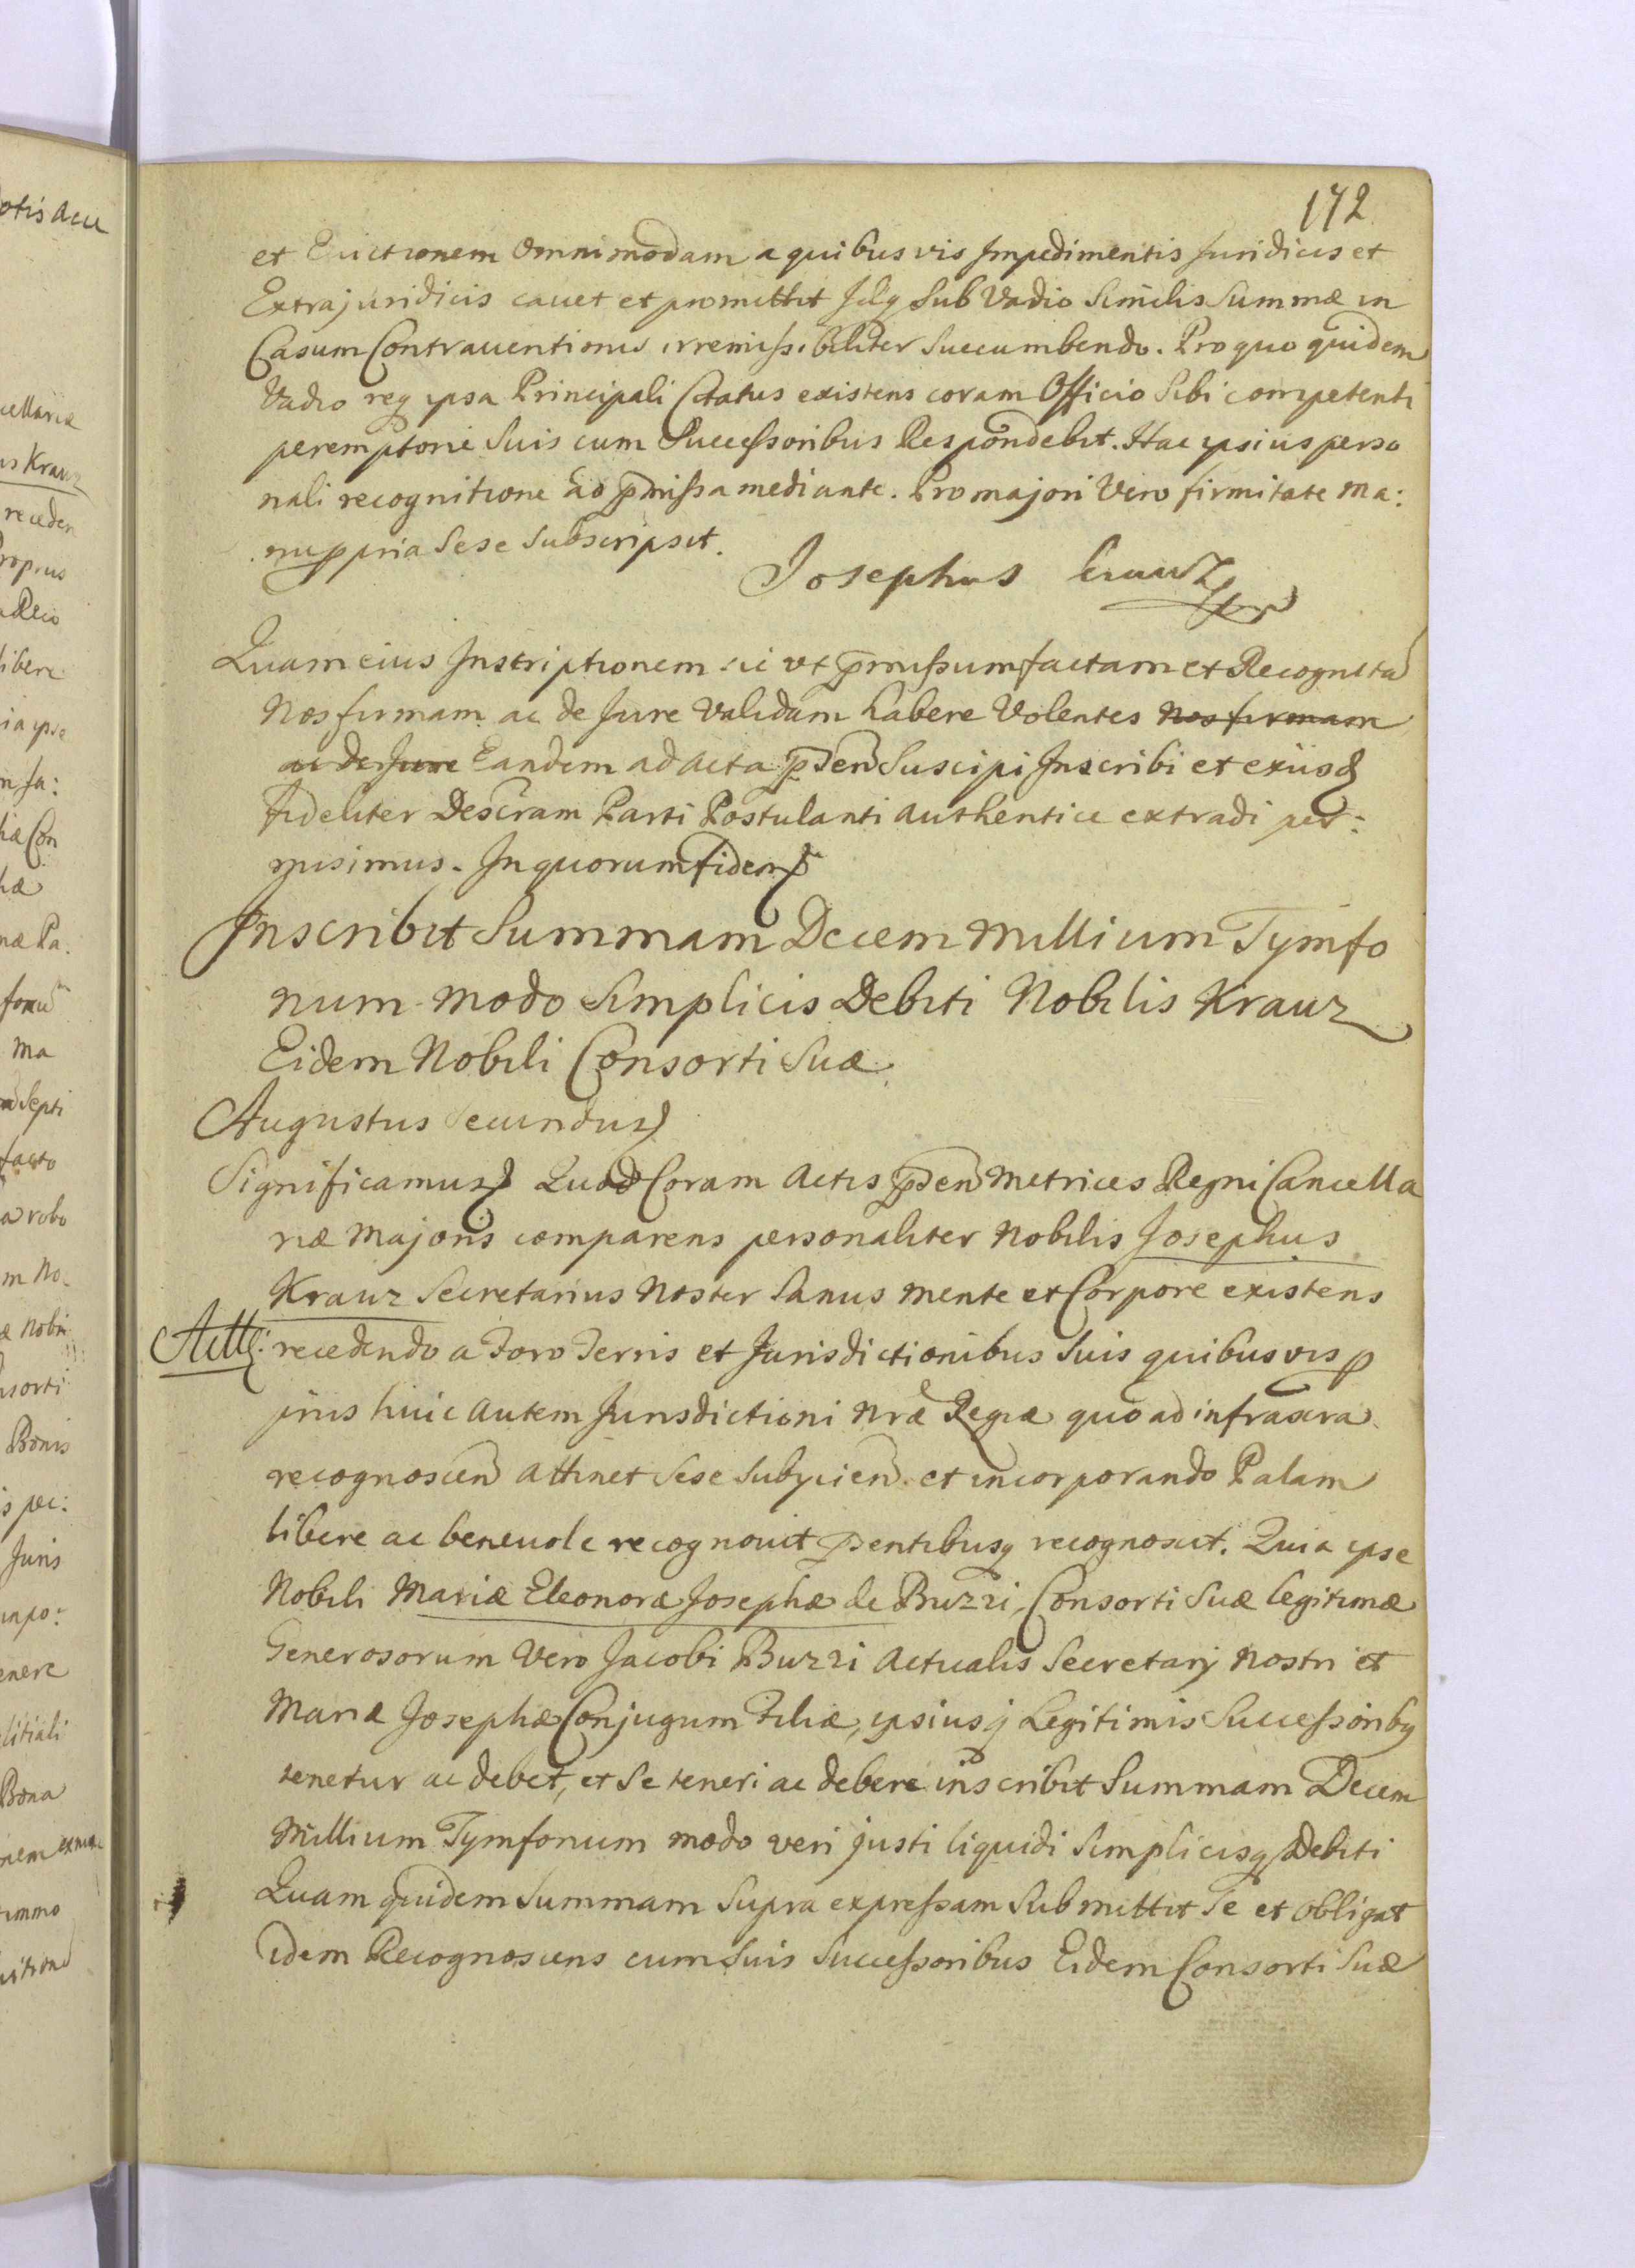 172
et Evictionem omnimodam a quibusvis Impedimentis Juridicis et
Extrajuridicis cavet et promittit Idq sub Vadio Similis Summæ in
Casum Contraventionis irremissibiliter Succumbendo. Pro quo quidem
Vadio req ipsa Principali Citatus existens coram Officio Sibi competenti
peremptorie Suis cum Successoribus Respondebit. Hac ipsius perso
nali recognitione ad p̄missa mediante. Pro majori Vero firmitate Ma:
nu ppria Sese Subscripsit.
Josephus Krauz
Quam eius Inscriptionem sic ut p̄missum factam et Recognitā
Nos firmam ac de Jure Validam habere Volentes Nos firmam
ac de Jure Eandem ad acta p̄sen Suscipi Inscribi et exiusq
fideliter Descram Parti Postulanti authentice extradi per:
misimus. In quorum Fidem
Inscribit Summam Decem Millium Tymfo
num modo Simplicis Debiti Nobilis Krauz
Eidem Nobili Consorti Suæ.
Augustus Secundus
Significamus Quod Coram Actis p̄sen Metrices Regni Cancella
riæ Majoris comparens personaliter Nobilis Josephus
Krauz Secretarius Noster Sanus mente et Corpore existens
recedendo a Foro Terris et Jurisdictionibus Suis quibusvis p
priis huic autem Jurisdictioni Nræ Regiæ quo ad infrascra
recognoscen attinet Sese Subijcien et incorporando Palam
libere ac benevole recognovit p̄sentibusq recognoscit. Quia ipse
Nobili Mariæ Eleonoræ Josephæ de Buzzi, Consorti Suæ legitimæ
Generosorum Vero Jacobi Buzzi Actualis Secretarij Nostri et
Mariæ Josephæ Conjugum Filiæ, ipsiusq Legitimis Successoribq
tenetur ac debet, et Se teneri ac debere inscribit Summam Decem
Millium Tymfonum modo veri justi liquidi Simplicisq Debiti
Quam quidem Summam Supra expressam Submittit Se et obligat
idem Recognoscens cum Suis Successoribus Eidem Consorti Suæ